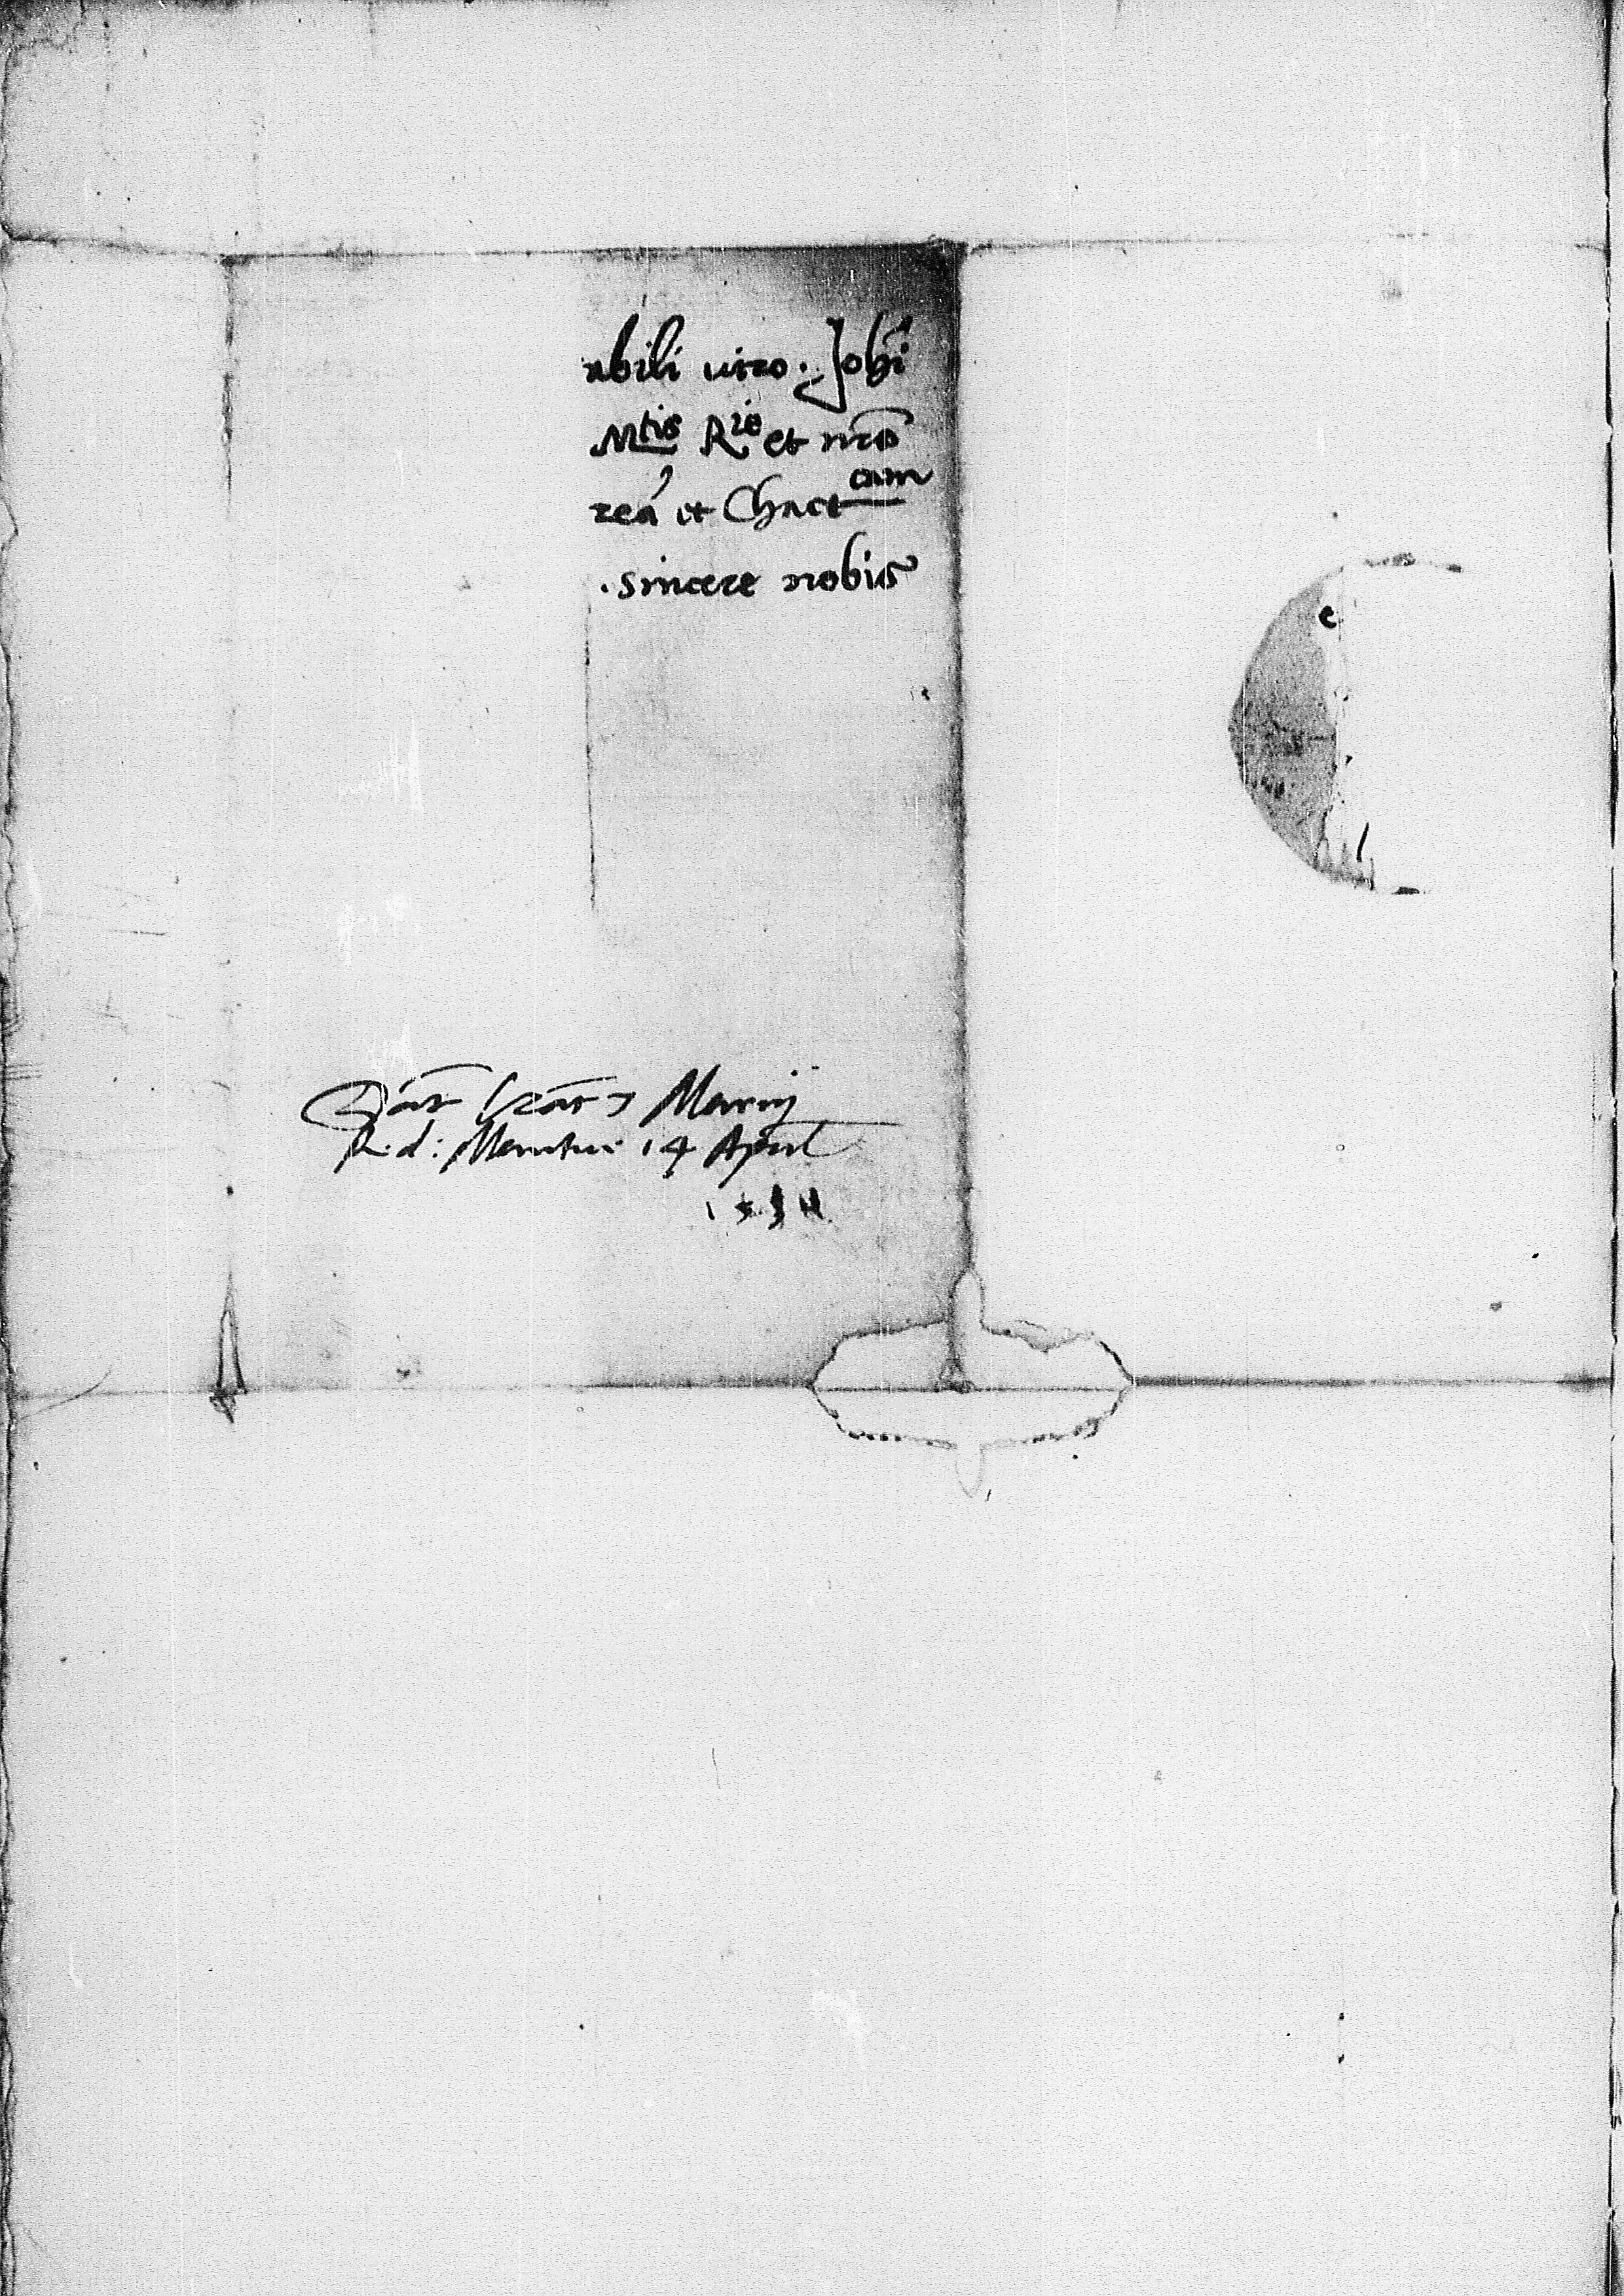 abili viro. Joh̄i
Mtis Rie et nr̄o
rea et Chact cam
. sincere nobis
Dat 7 Marcij
R. d: Mantue 14 April